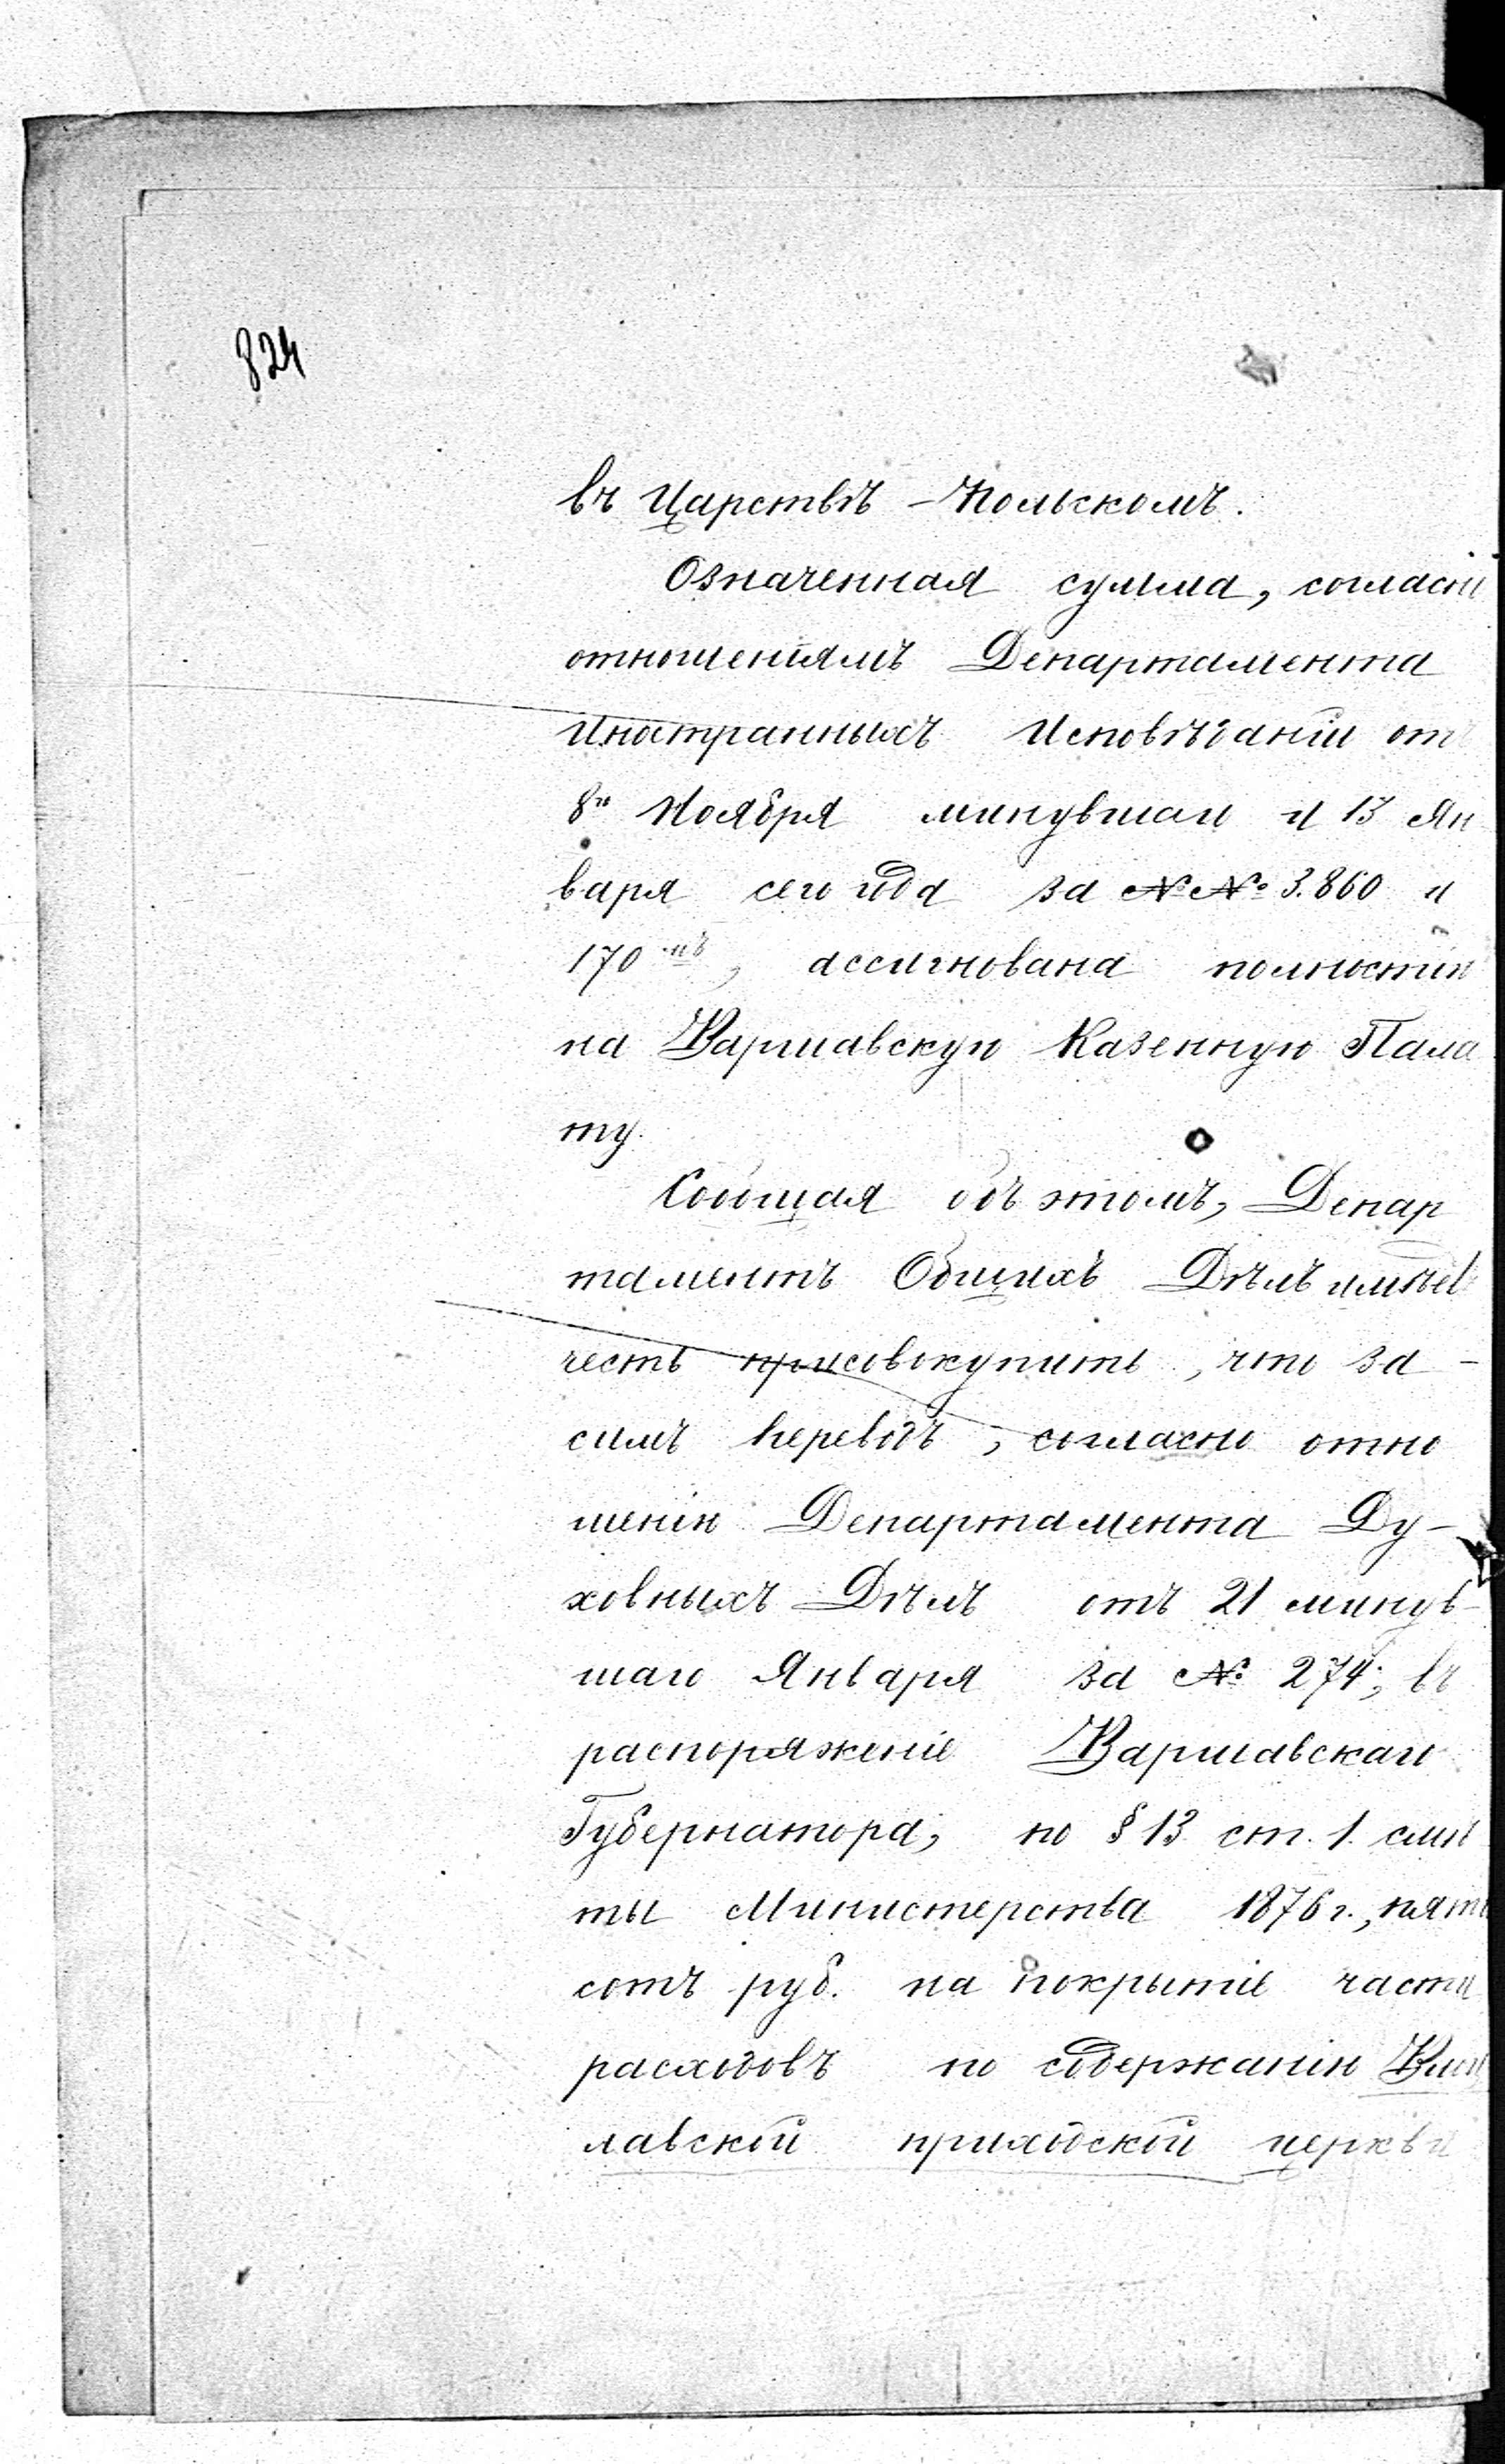 824
въ Царствѣ Польскомъ.
Означенная сумма, согласно
отношеніямъ Департамента
Иностранныхъ Исповѣданій отъ
8го Ноября минувшаго и 13 Ян
варя сего года за №№ 3.860 и
170мъ, ассигнована полностію
на Варшавскую Казенную Пала
ту.
Сообщая объ этомъ, Депар
таментъ Общихъ Дѣлъ имѣетъ
честь присовокупить, что за-
симъ переводъ, согласно отно
шенію Департамента Ду-
ховныхъ Дѣлъ отъ 21 минув-
шаго Января за № 274, въ
распоряженіе Варшавскаго
Губернатора, по § 13 ст. 1. смѣ
ты Министерства 1876 г., пять
сотъ руб. на покрытіе части
расходовъ по содержанію
лавской приходской церкви